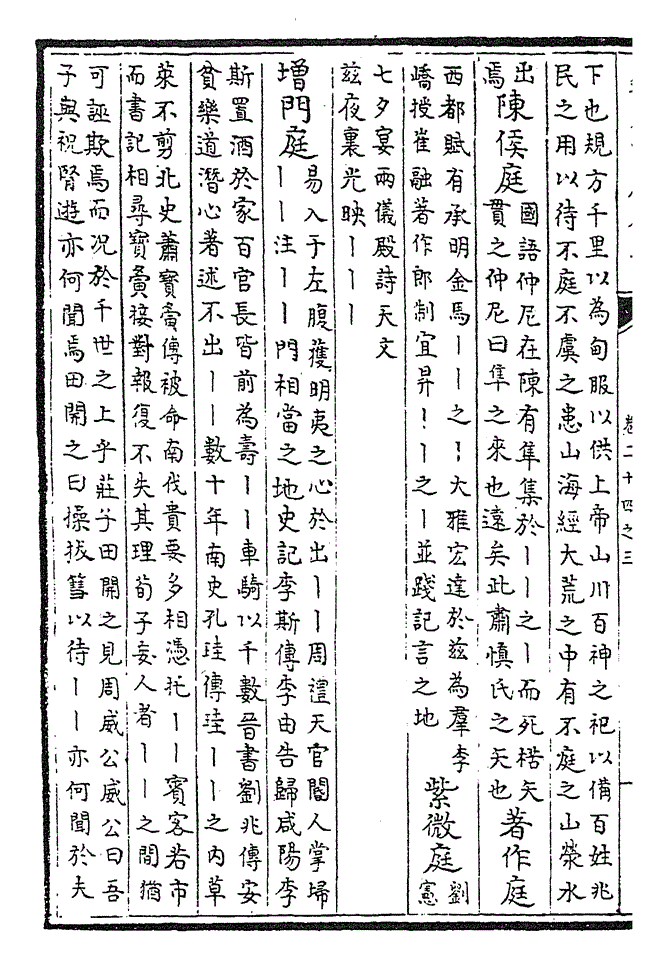 卷二十四之三
一
下也規方千里以為甸服以供上帝山川百神之祀以備百姓兆
民之用以待不庭不虞之患山海經大荒之中有不庭之山滎水
出
焉
陳侯庭
國語仲尼在陳有隼集於丨丨之丨而死楛矢
貫之仲尼曰隼之來也遠矣此肅慎氏之矢也
著作庭
西都賦有承明金馬丨丨之丨大雅宏達於茲為羣李
嶠授崔融著作郎制宜昇丨丨之丨並踐記言之地
紫微庭
劉
憲
七夕宴兩儀殿詩天文
茲夜裏光映丨丨丨
增門庭
易入于左腹獲明夷之心於出丨丨周禮天官閽人掌埽
丨丨注丨丨門相當之地史記李斯傳李由告歸咸陽李
斯置酒於家百官長皆前為壽丨丨車騎以千數晉書劉兆傳安
貧樂道潛心著述不出丨丨數十年南史孔珪傳珪丨丨之内草
萊不剪北史蕭寶夤傳被命南伐貴要多相憑托丨丨賓客若市
而書記相尋寶夤接對報復不失其理荀子妄人者丨丨之間猶
可誣欺焉而况於千世之上乎莊子田開之見周威公威公曰吾
子與祝腎遊亦何聞焉田開之曰操拔篲以待丨丨亦何聞於夫